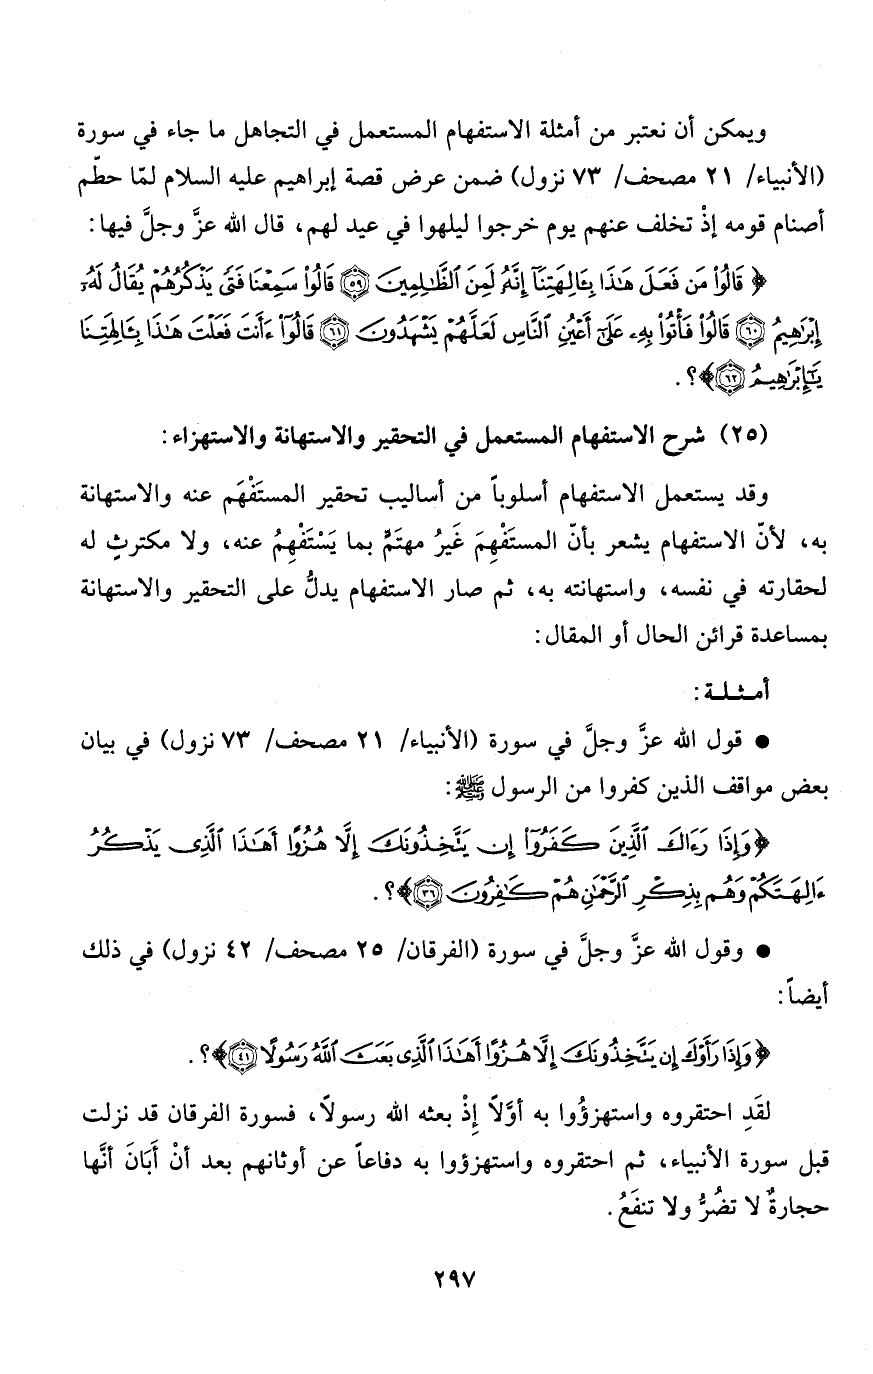 ويمكن أن نعتبر من أمثلة الاستفهام المستعمل في التجاهل ما جاء في سورة
(الأنبياء/ ٢١ مصحف/ ٧٣ نزول) ضمن عرض قصة إبراهيم عليه السلام لمّا حطّم
أصنام قومه إذْ تخلف عنهم يوم خرجوا ليلهوا في عيد لهم، قال الله عزَّ وجلَّ فيها:
﴿قَالُوا۟ مَن فَعَلَ هَـٰذَا بِـَٔالِهَتِنَآ إِنَّهُۥ لَمِنَ ٱلظَّـٰلِمِينَ ﴿٥٩﴾ قَالُوا۟ سَمِعْنَا فَتًى يَذْكُرُهُمْ يُقَالُ لَهُۥٓ
إِبْرَٰهِيمُ ﴿٦٠﴾ قَالُوا۟ فَأْتُوا۟ بِهِۦ عَلَىٰٓ أَعْيُنِ ٱلنَّاسِ لَعَلَّهُمْ يَشْهَدُونَ ﴿٦١﴾ قَالُوٓا۟ ءَأَنتَ فَعَلْتَ هَـٰذَا بِـَٔالِهَتِنَا
يَـٰٓإِبْرَٰهِيمُ ﴿٦٢﴾﴾؟.
(٢٥) شرح الاستفهام المستعمل في التحقير والاستهانة والاستهزاء:
وقد يستعمل الاستفهام أسلوباً من أساليب تحقير المستَفْهَم عنه والاستهانة
به، لأنّ الاستفهام يشعر بأنّ المستَفْهِمَ غَيرُ مهتَمٍّ بما يَسْتَفْهِمُ عنه، ولا مكترثٍ له
لحقارته في نفسه، واستهانته به، ثم صار الاستفهام يدلُّ على التحقير والاستهانة
بمساعدة قرائن الحال أو المقال:
أمثلة:
● قول الله عزَّ وجلَّ في سورة (الأنبياء/ ٢١ مصحف/ ٧٣ نزول) في بيان
بعض مواقف الذين كفروا من الرسول ﷺ:
﴿وَإِذَا رَءَاكَ ٱلَّذِينَ كَفَرُوٓا۟ إِن يَتَّخِذُونَكَ إِلَّا هُزُوًا أَهَـٰذَا ٱلَّذِى يَذْكُرُ
ءَالِهَتَكُمْ وَهُم بِذِكْرِ ٱلرَّحْمَـٰنِ هُمْ كَـٰفِرُونَ ﴿٣٦﴾﴾؟.
● وقول الله عزَّ وجلَّ في سورة (الفرقان/ ٢٥ مصحف/ ٤٢ نزول) في ذلك
أيضاً:
﴿وَإِذَا رَأَوْكَ إِن يَتَّخِذُونَكَ إِلَّا هُزُوًا أَهَـٰذَا ٱلَّذِى بَعَثَ ٱللَّهُ رَسُولًا ﴿٤١﴾﴾؟.
لقَدِ احتقروه واستهزؤُوا به أوَّلاً إذْ بعثه الله رسولاً، فسورة الفرقان قد نزلت
قبل سورة الأنبياء، ثم احتقروه واستهزؤوا به دفاعاً عن أوثانهم بعد أنْ أَبَانَ أنَّها
حجارةٌ لا تضُرُّ ولا تنفَعُ.
٢٩٧